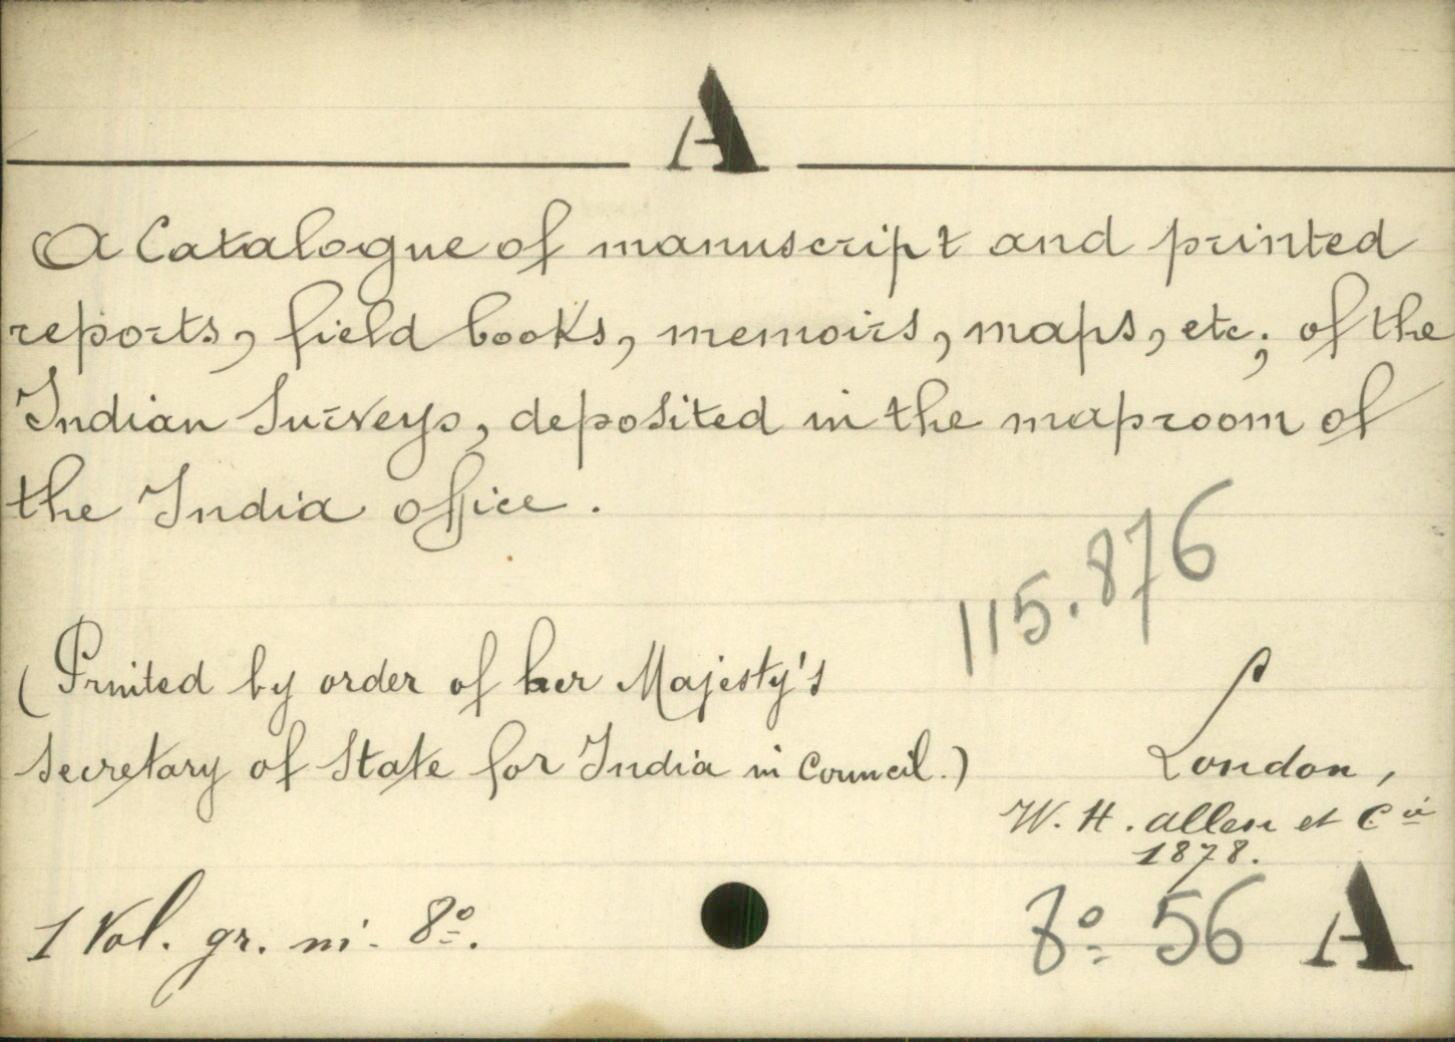 A
A Catalogue of manuscript and printed
reports, field books, memoirs, maps, etc; of the
Indian Surveys, deposited in the maproom of
the India office.
115.876
(Printed by order of her Majesty's
Secretary of State for India in Council.)
London,
W. H. Allen et Cie
1878.
1 Vol. gr. in-8º.
8º 56 A